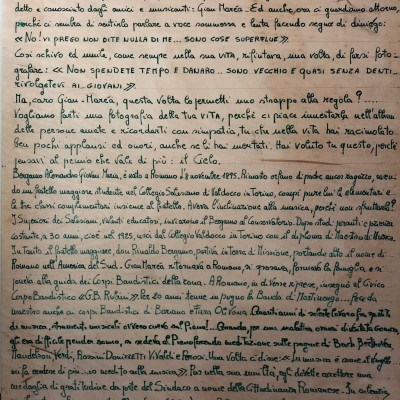 detto e conosciuto dagli amici e musicanti: Gian Marea. Ed anche ora ci guardiamo attorno,
perché ci sembra di sentirlo parlare a voce sommessa e lenta facendo segno di diniego:
« NO! VI PREGO NON DITE NULLA DI ME... SONO COSE SUPERFLUE ».
Così schivo ed umile, come sempre nella sua VITA, rifiutava, una volta, di farsi foto-
grafare: « NON SPENDETE TEMPO E DANARO.. SONO VECCHIO E QUASI SENZA DENTI..
RIVOLGETEVI AI GIOVANI ».
Ma, caro Gian-Marea, questa volta lo permetti uno strappo alla regola?....
Vogliamo farti una fotografia della tua VITA, perché ci piace inserirla nell'album
delle persone amate e ricordarti con simpatia, tu che nella vita hai racimolato
ben pochi applausi ed onori, anche se li hai meritati. Hai voluto tu questo, perché
pensavi al premio che vale di più: il Cielo.
Bergamo Alessandro Giovanni Maria, è nato a Romano l'8 novembre 1895. Rimasto orfano di padre ancor ragazzo, essen-
do un fratello maggiore studente nel Collegio Salesiano di Valdocco in Torino, compì pure lui le elementari e
le tre classi complementari insieme al fratello. Aveva l'inclinazione alla musica, perché non sfruttarla?
I Superiori dei Salesiani, valenti educatori, inviarono il Bergamo al Conservatorio. Dopo studi pesanti e pazienza
costante, a 30 anni, cioè nel 1925, uscì dal Collegio Valdocco in Torino con il diploma di Maestro di Musica.
In tanto il fratello maggiore, don Rinaldo Bergamo, partiva in terra di Missione, portando alto il nome di
Romano nell'America del Sud. Gian Marea ritornava a Romano, si sposava, formava la famiglia, e si
poneva alla guida dei Corpi Bandistici della zona. A Romano, in diverse riprese, insegnò al Civico
Corpo Bandistico « G.B. Rubini ». Per 20 anni tenne in pugno la Banda di Martinengo... Poi fu
maestro anche ai corpi bandistici di Bariano e Fara Olivana.
di musica, strumenti musicati ovvero curvo sul Piano! Quando, per una malattia ormai
gli era difficile prender sonno, si sedeva al Piano facendo meditazione sulle pagine di Bach, Beethoven,
Mendelssohn, Verdi, Rossini, Donizetti, Vivaldi e Perosi. Una volta ci disse: « La musica è come il Vangelo
mi fa credere di più... io medito sulla musica ». Poi nella sua umiltà, gli dovette accettare una
medaglia di gratitudine da parte del Sindaco a nome della Cittadinanza Romanese. In